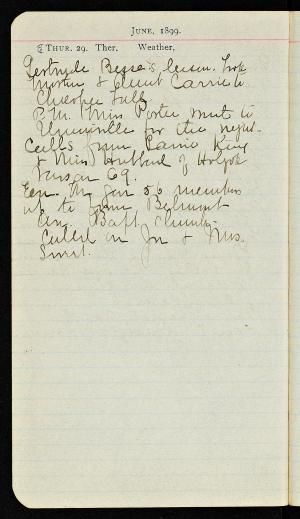 JUNE, 1899.
THUR. 29. Ther. Weather,
Gertrude Besse's lesson. Took
Mother & Aunt Carrie to
Cherokee Falls
P.M. Miss Porter went to
for the night.
Calls from King
& Miss Hubbard of Holyoke
Vassar 69.
Eve. Mr. 56 members
up to from Belmont
Ave. Bapt. Church.
Called on & Mrs.